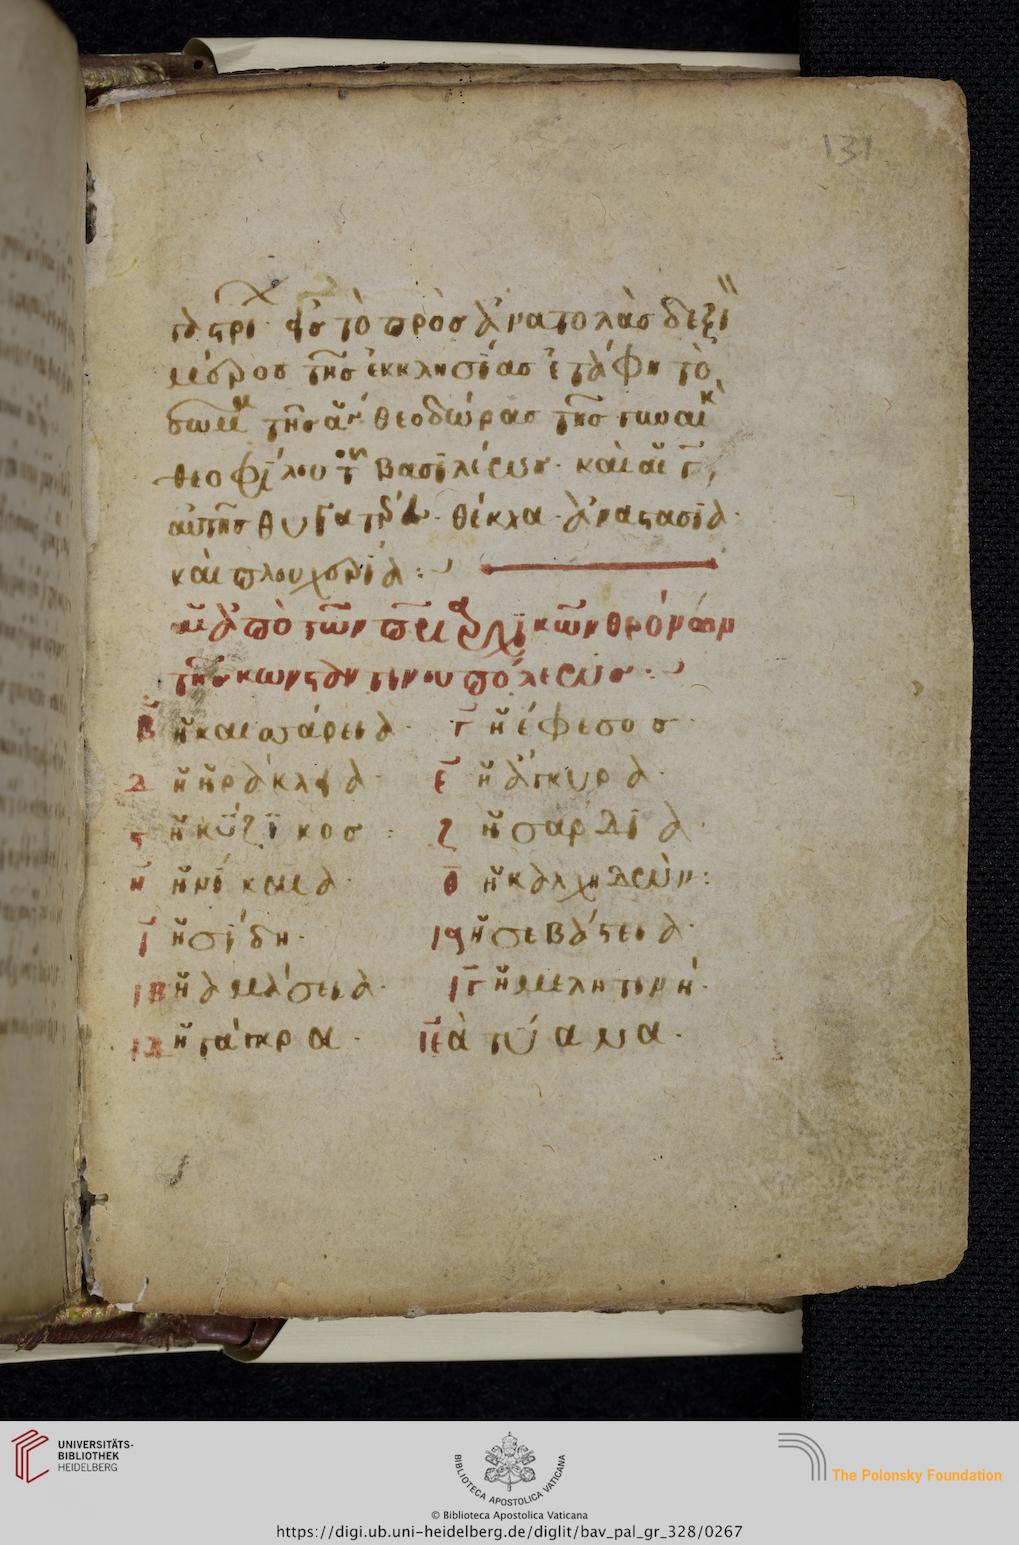 131
εἰς τὸ πρὸς ἀνατολὰς δεξι
μέρος τῆς ἐκκλησίας ἐτάφη τὸ
σῶμ τῆς ἁγ θεοδώρας τῆς γυναικ
θεοφίλου τοῦ βασιλέως· καὶ αἱ γ
αὐτῆς θυγατέρ· θέκλα· ἀναστασία·
καὶ πλουχερία :
ἀπὸ τῶν πριαρχικῶν θρόνων
τῆς κωνσταντινουπόλεως :
β ἡ καισάρεια· γ ἡ ἔφεσος·
δ ἡ ἡράκλεια· ε ἡ ἄγκυρα·
ϛ ἡ κύζικος : ζ ἡ σάρδια·
η ἡ νίκαια· θ ἡ καλχηδών :
ι ἡ σίδη· ια ἡ σεβάστεια·
ιβ ἡ ἀμάσεια· ιγ ἡ μελητινή·
ιδ ἡ γάγκρα· ιε ἁ τύανα·
UNIVERSITÄTS-
BIBLIOTHEK
HEIDELBERG
BIBLIOTECA APOSTOLICA VATICANA
The Polonsky Foundation
© Biblioteca Apostolica Vaticana
https://digi.ub.uni-heidelberg.de/diglit/bav_pal_gr_328/0267